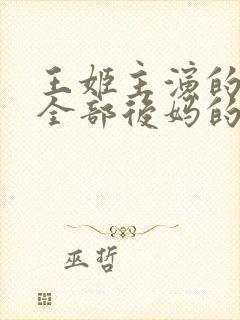 王姬主演的
全部後妈的
巫哲